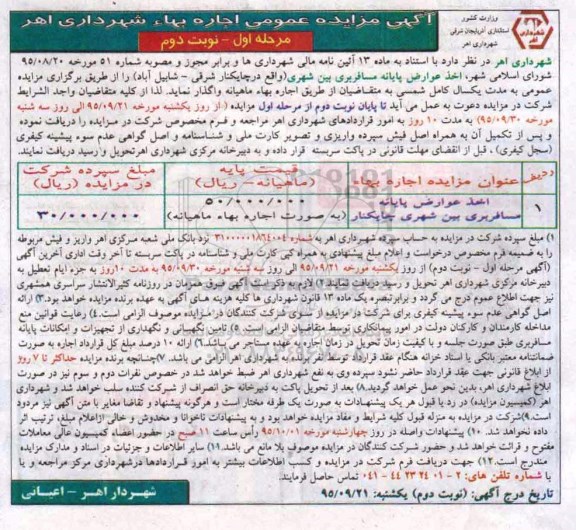 آگهی مزایده عمومی اجاره بهاء شهرداری اهر
مرحله اول - نوبت دوم
وزارت کشور
استانداری آذربایجان شرقی
شهرداری اهر
شهرداری اهر در نظر دارد با استناد به ماده ۱۳ آئین نامه مالی شهرداری ها و برابر مجوز و مصوبه شماره ۵۱ مورخه ۹۵/۰۸/۲۰
شورای اسلامی شهر، اخذ عوارض پایانه مسافربری بین شهری (واقع درچایکنار شرقی - شابیل آباد) را از طریق برگزاری مزایده
عمومی به مدت یکسال کامل شمسی به متقاضیان از طریق اجاره بهاء ماهیانه واگذار نماید. لذا از کلیه متقاضیان واجد الشرایط
شرکت در مزایده دعوت به عمل می آید تا پایان نوبت دوم از مرحله اول مزایده (از روز یکشنبه مورخه ۹۵/۰۹/۲۱ الی روز سه شنبه
مورخه ۹۵/۰۹/۳۰) به مدت ۱۰ روز به امور قراردادهای شهرداری اهر مراجعه و فرم مخصوص شرکت در مزایده را دریافت نموده
و پس از تکمیل آن به همراه اصل فیش سپرده واریزی و تصویر کارت ملی و شناسنامه و اصل گواهی عدم سوء پیشینه کیفری
(سجل کیفری) ، قبل از انقضای مهلت قانونی در پاکت سربسته قرار داده و به دبیرخانه مرکزی شهرداری اهر تحویل و رسید دریافت نمایند.
ردیف عنوان مزایده اجاره بهاء قیمت پایه (ماهیانه - ریال) مبلغ سپرده شرکت در مزایده (ریال)
۱ اخذ عوارض پایانه مسافربری بین شهری چایکنار ۵۰/۰۰۰/۰۰۰ (به صورت اجاره بهاء ماهیانه) ۳۰/۰۰۰/۰۰۰
۱) مبلغ سپرده شرکت در مزایده به حساب سپرده شهرداری اهر به شماره ۳۱۰۰۰۰۰۱۸۶۴۰۰۵ نزد بانک ملی شعبه مرکزی اهر واریز و فیش مربوطه
را به ضمیمه فرم مخصوص درخواست و اعلام مبلغ پیشنهادی به همراه کپی کارت ملی و شناسنامه در پاکت سربسته تا آخر وقت اداری آخرین آگهی
(آگهی مرحله اول - نوبت دوم) از روز یکشنبه مورخه ۹۵/۰۹/۲۱ الی روز سه شنبه مورخه ۹۵/۰۹/۳۰ به مدت ۱۰ روز به جزء ایام تعطیل به
دبیرخانه مرکزی شهرداری اهر تحویل و رسید دریافت نمایند. ۲) لازم به ذکر است آگهی فوق همزمان در روزنامه کثیرالانتشار سراسری همشهری
نیز جهت اطلاع عموم درج می گردد و برابر تبصره یک ماده ۱۳ قانون شهرداری ها کلیه هزینه های آگهی به عهده برنده مزایده خواهد بود. ۳) ارائه
اصل گواهی عدم سوء پیشینه کیفری برای شرکت در مزایده از سوی شرکت کنندگان در مزایده موصوف الزامی است. ۴) رعایت قوانین منع
مداخله کارمندان و کارکنان دولت در امور پیمانکاری توسط متقاضیان الزامی است. ۵) تامین نگهبانی و نگهداری از تجهیزات و امکانات پایانه
مسافربری طبق صورت جلسه و با کیفیت زمان تحویل در زمان اجاره به عهده مستاجر می باشد. ۶) ارائه ۱۰ درصد مبلغ کل قرارداد اجاره به صورت
ضمانتنامه معتبر بانکی یا اسناد خزانه هنگام عقد قرارداد توسط نفر برنده به شهرداری اهر الزامی می باشد. ۷) چنانچه برنده مزایده حداکثر تا ۷ روز
از ابلاغ قانونی جهت عقد قرارداد حاضر نشود سپرده وی به نفع شهرداری اهر ضبط خواهد شد در خصوص نفرات دوم و سوم نیز در صورت
ابلاغ شهرداری اهر، بدین نحو عمل خواهد گردید. ۸) بعد از تحویل پاکت به دبیرخانه حق انصراف از شرکت کننده سلب خواهد شد و شهرداری
اهر (کمیسیون مزایده) در رد یا قبول هر یک پیشنهادات به صورت یک طرفه مختار است و هرگونه پیشنهاد و تقاضا مغایر با متن آگهی نیز مردود
است. ۹) شرکت در مزایده به منزله قبول کلیه شرایط و مفاد مزایده خواهد بود و به پیشنهادات ناخوانا و مخدوش و خالی از اعلام مبلغ، ترتیب اثر
داده نخواهد شد. ۱۰) پیشنهادات واصله در روز چهارشنبه مورخه ۹۵/۱۰/۰۱ رأس ساعت ۱۱ صبح در حضور اعضاء کمیسیون عالی معاملات
مفتوح و قرائت خواهد شد و حضور شرکت کنندگان در مزایده موصوف بلا مانع می باشد. ۱۱) سایر اطلاعات و جزئیات در اسناد و مدارک مزایده
مندرج است. ۱۲) جهت دریافت فرم شرکت در مزایده و کسب اطلاعات بیشتر به امور قراردادها در شهرداری مرکز مراجعه و یا
با شماره تلفن های: ۲ - ۲۴۰۱ ۴۴۲۳ - ۰۴۱ تماس حاصل فرمایند.
تاریخ درج آگهی: (نوبت دوم) یکشنبه: ۹۵/۰۹/۲۱
شهردار اهر - اعیانی